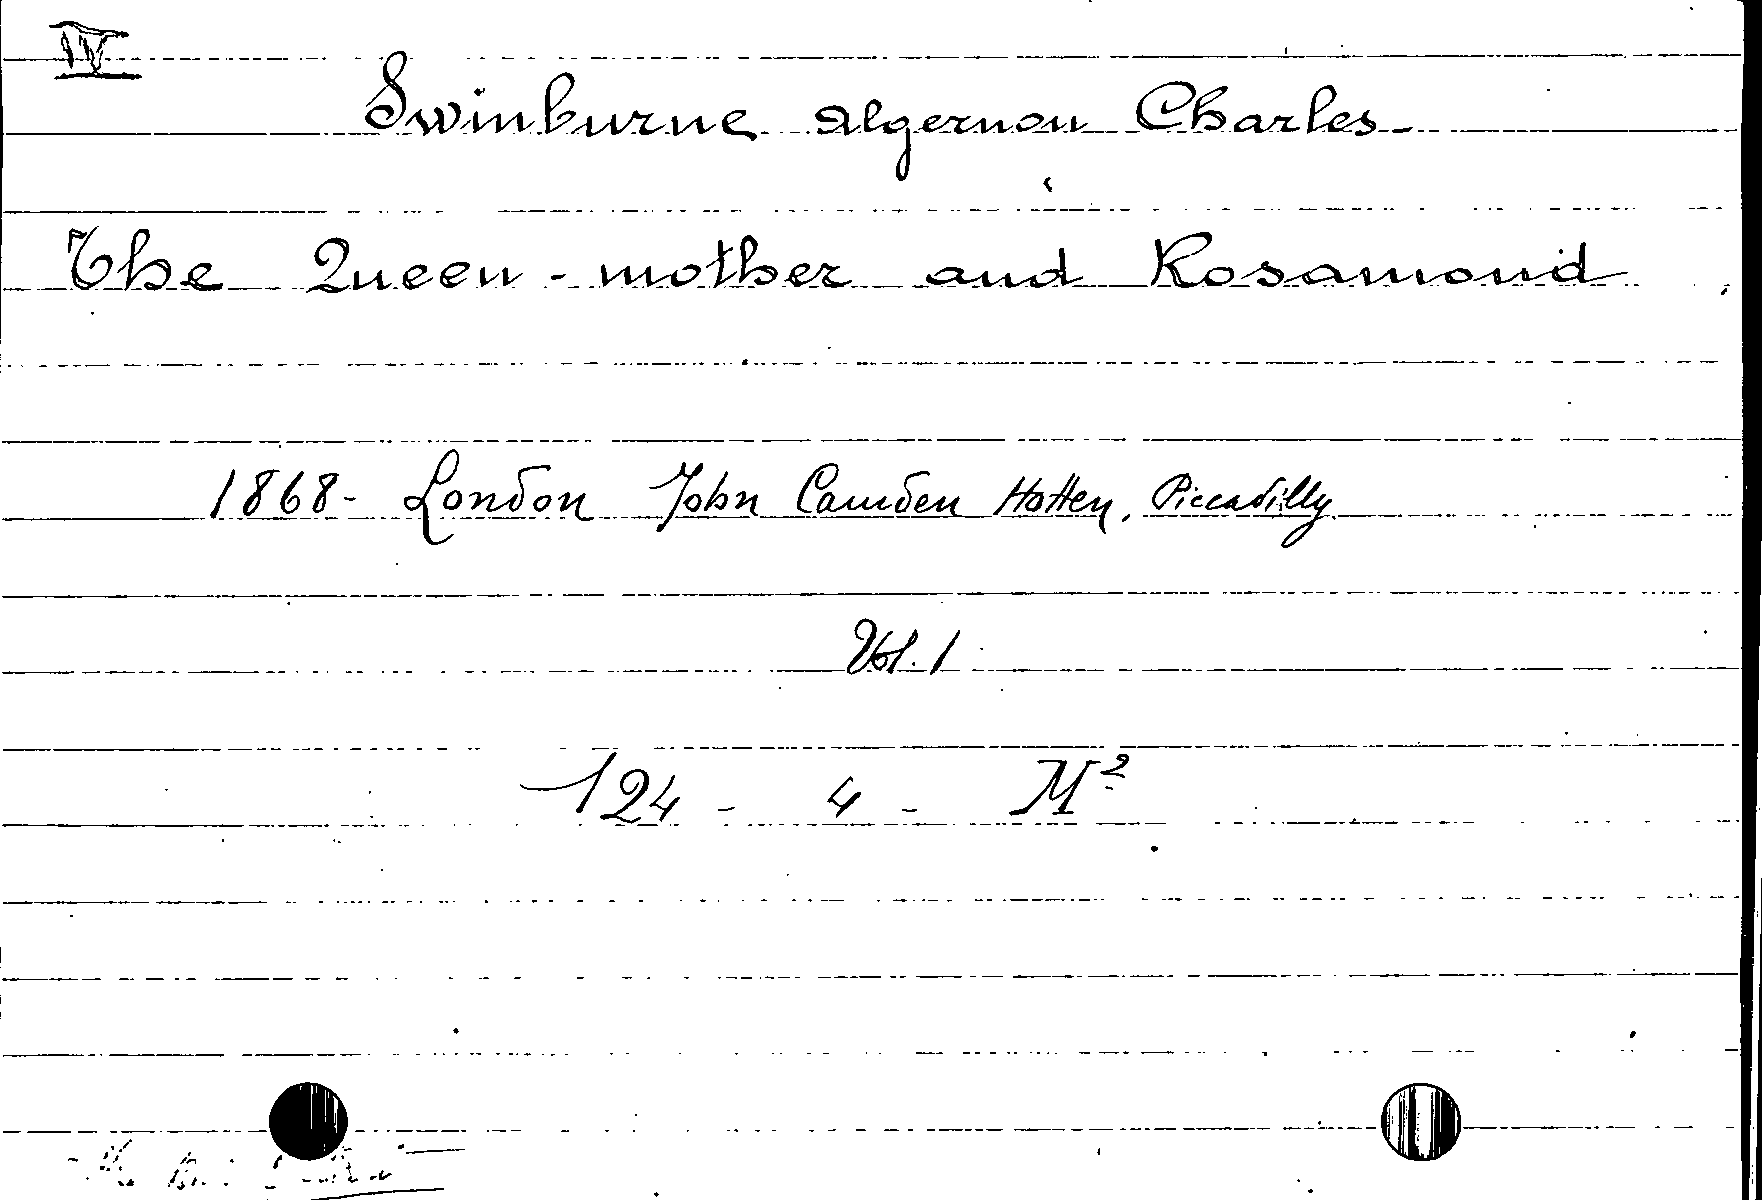 IV
Swinburne Algernon Charles
The Queen-mother and Rosamond
1868- London John Camden Hotten, Piccadilly
Vol. 1
124 - 4 - M²